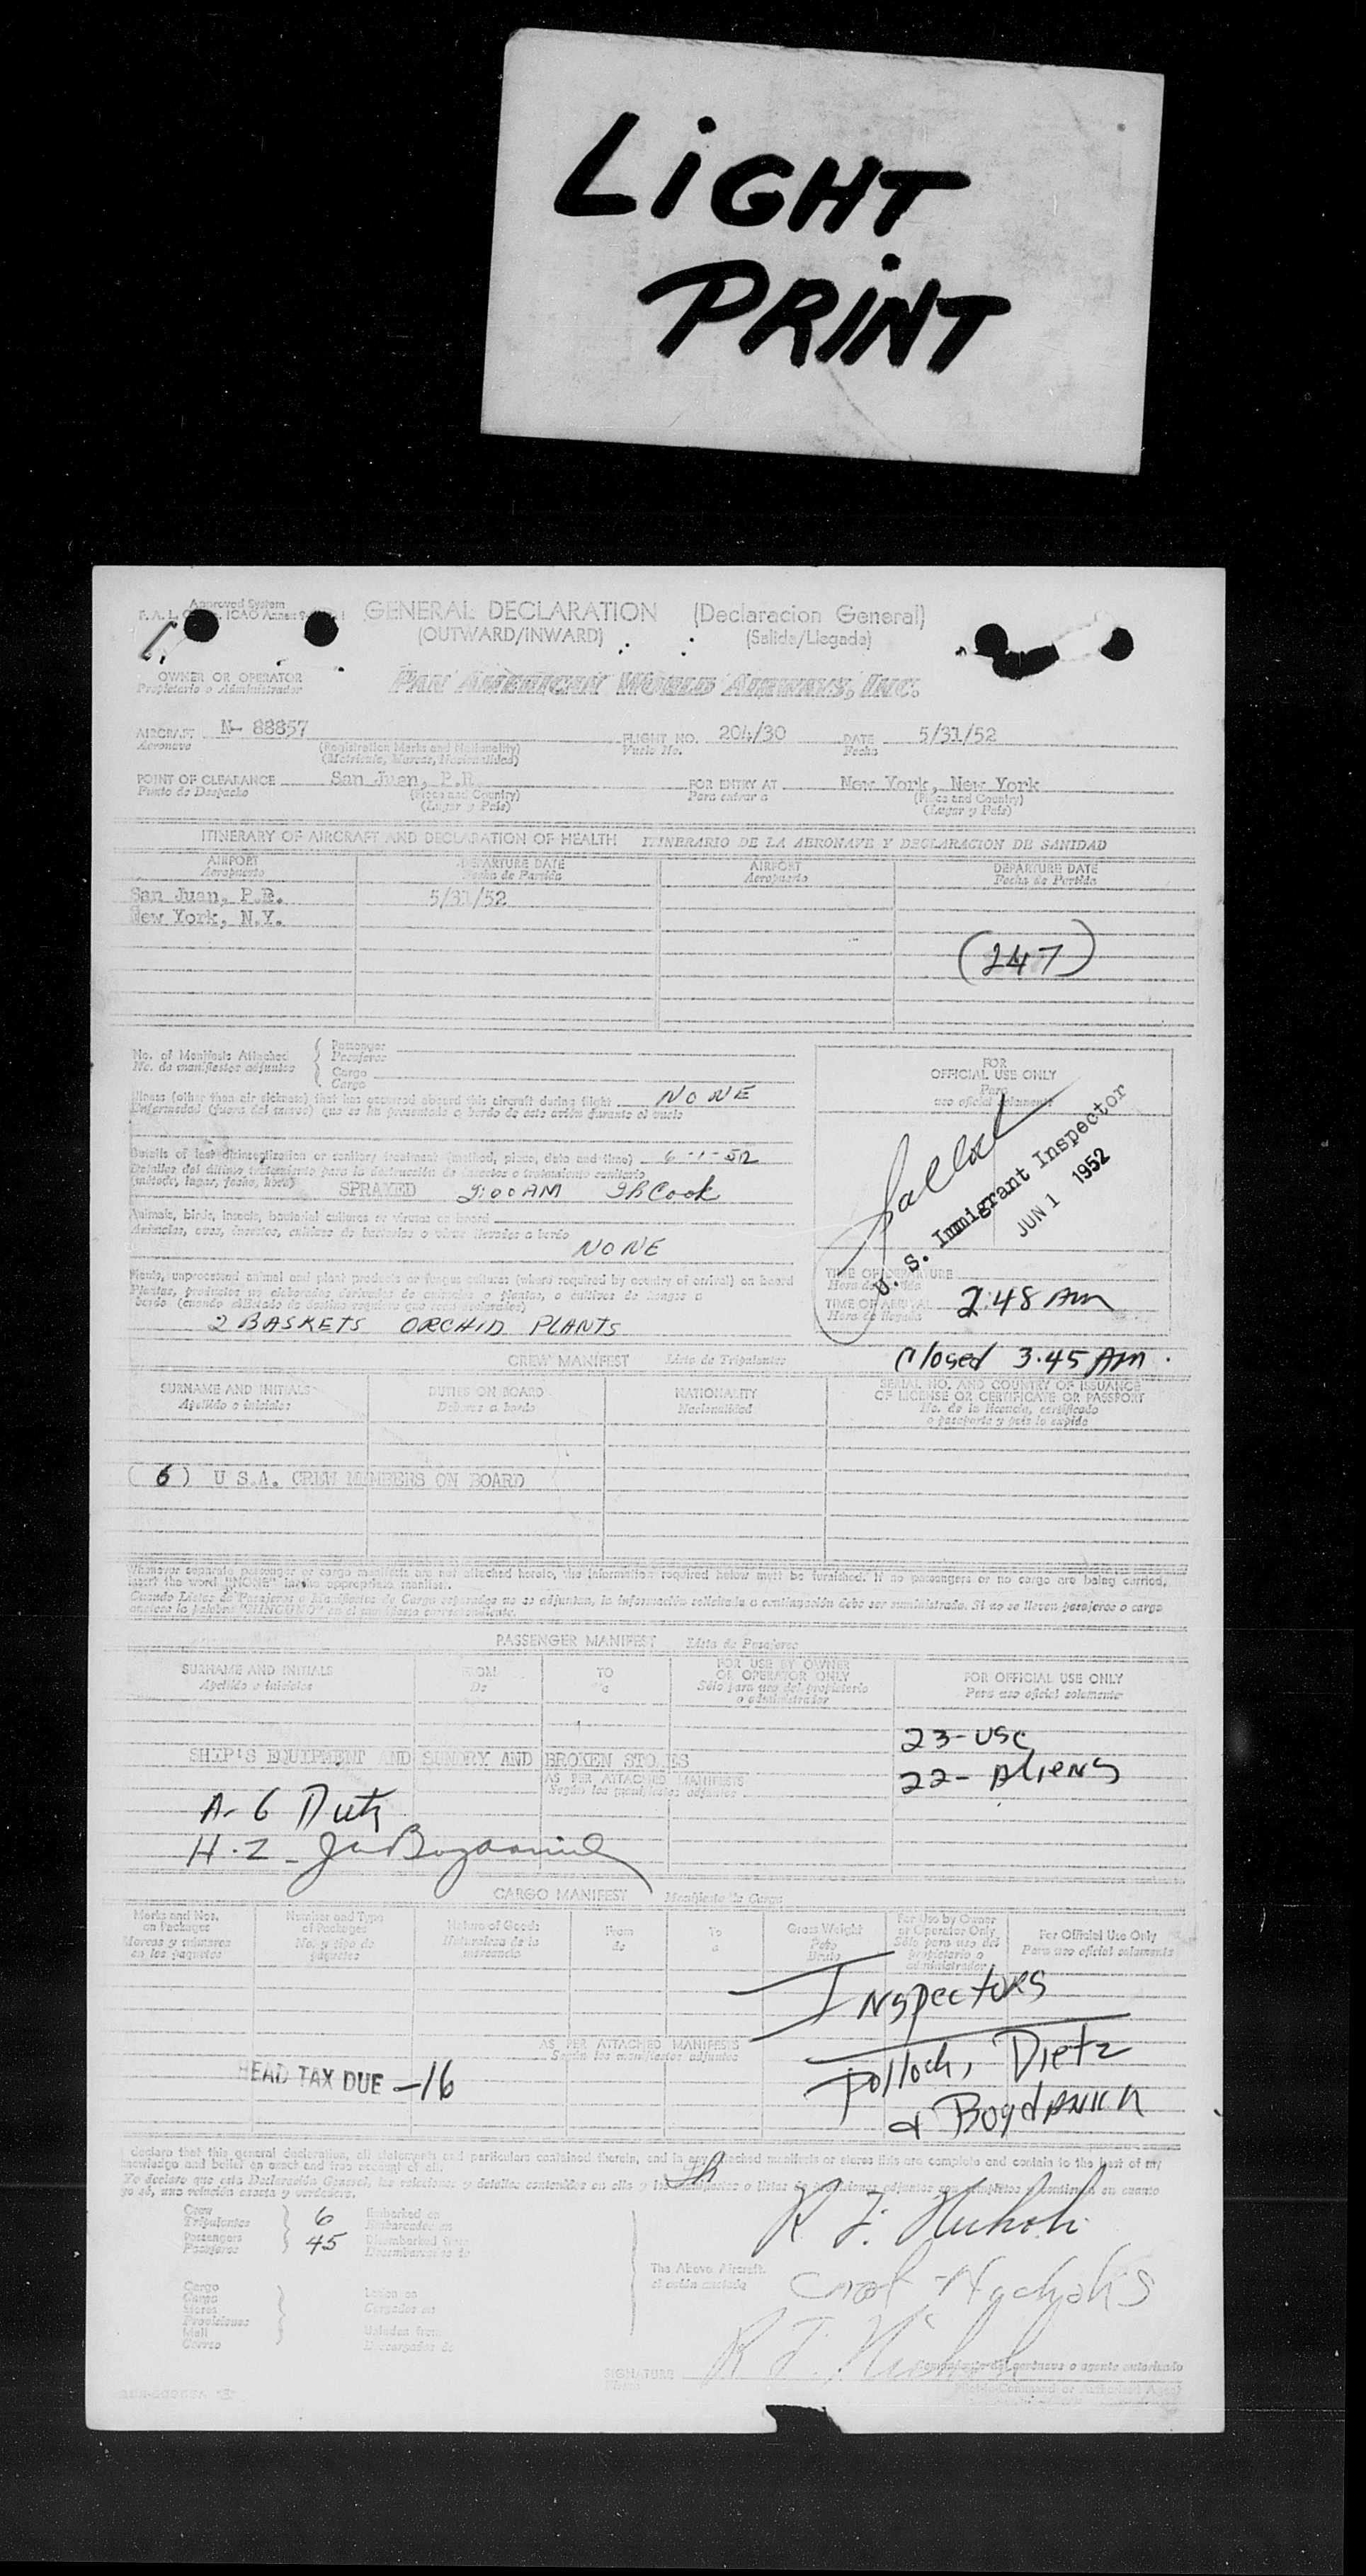 LiGHT
PRiNT
Approved System
GENERAL DECLARATION (Declaracion General)
(OUTWARD/INWARD) (Salida/Llegada)
OWNER OR OPERATOR
Propietario o Administrador
PAN AMERICAN WORLD AIRWAYS, INC.
AIRCRAFT N- 88857 FLIGHT NO. 204/30 DATE 5/31/52
Aeronave (Registration Marks and Nationality) Vuelo No. Fecha
(Matricula, Marcas, Nacionalidad)
POINT OF CLEARANCE San Juan, P.R. FOR ENTRY AT New York, New York
Punto de Despacho (Place and Country) Para entrar a (Place and Country)
(Lugar y Pais) (Lugar y Pais)
ITINERARY OF AIRCRAFT AND DECLARATION OF HEALTH ITINERARIO DE LA AERONAVE Y DECLARACION DE SANIDAD
AIRPORT DEPARTURE DATE AIRPORT DEPARTURE DATE
Aeropuerto Fecha de Partida Aeropuerto Fecha de Partida
San Juan, P.R. 5/31/52
New York, N.Y.
(247)
No. of Manifests Attached Passenger
No. de manifiestos adjuntos Pasajeros
Cargo
Cargo
FOR
OFFICIAL USE ONLY
Para
uso oficial solamente
Illness (other than air sickness) that has occurred aboard this aircraft during flight NONE
Enfermedad (fuera del mareo) que se ha presentado a bordo de este avión durante el vuelo
U. S. Immigrant Inspector
JUN 1 1952
Details of last disinsectization or sanitary treatment (method, place, date and time) 6-1-52
Detalles del último tratamiento para la destrucción de insectos o tratamiento sanitario
(método, lugar, fecha, hora) SPRAYED 9:00 AM Cook
Animals, birds, insects, bacterial cultures or viruses on board
Animales, aves, insectos, cultivos de bacterias o virus llevados a bordo
NONE
Plants, unprocessed animal and plant products or fungus cultures (where required by country of arrival) on board
Plantas, productos no elaborados derivados de animales o plantas, o cultivos de hongos a
bordo (cuando el Estado de destino requiera que sean declarados)
2 BASKETS ORCHID PLANTS
TIME OF DEPARTURE
TIME OF ARRIVAL 2:48 AM
Closed 3:45 AM.
CREW MANIFEST Lista de Tripulantes
SURNAME AND INITIALS DUTIES ON BOARD NATIONALITY SERIAL NO. AND COUNTRY OF ISSUANCE
OF LICENSE OR CERTIFICATE OR PASSPORT
Apellido e iniciales Deberes a bordo Nacionalidad No. de la licencia, certificado
o pasaporte y país lo expide
(6) U S.A. CREW MEMBERS ON BOARD
Whenever separate passenger or cargo manifests are not attached hereto, the information required below must be furnished. If no passengers or no cargo are being carried,
insert the word "NONE" in the appropriate manifest.
Cuando Listas de Pasajeros o Manifiestos de Carga separados no se adjuntan, la información solicitada a continuación debe ser suministrada. Si no se llevan pasajeros o carga
PASSENGER MANIFEST Lista de Pasajeros
SURNAME AND INITIALS FROM TO FOR USE BY OWNER
OR OPERATOR ONLY FOR OFFICIAL USE ONLY
Apellido e iniciales De Sólo para uso del propietario
o administrador Para uso oficial solamente
23-USC
SHIP'S EQUIPMENT AND SUNDRY AND BROKEN STORES
22- Aliens
AS PER ATTACHED MANIFESTS
Según los manifiestos adjuntos
A- 6 Dietz
H.2 -
CARGO MANIFEST Manifiesto de Carga
Marks and Nos.
on Packages
Marcas y números
en los paquetes
Number and Type
of Packages
No. y tipo de
paquetes
Nature of Goods
Naturaleza de la
mercancía
From
de
To
a
Gross Weight
Peso
Bruto
For Use by Owner
or Operator Only
Sólo para uso del
propietario o
administrador
For Official Use Only
Para uso oficial solamente
Inspectors
AS PER ATTACHED MANIFESTS
Según los manifiestos adjuntos
Pollock, Dietz
& Bogdanich
HEAD TAX DUE -16
I declare that this general declaration, all statements and particulars contained therein, and in any attached manifests or stores lists are complete and contain to the best of my
knowledge and belief an exact and true account of all.
Yo declaro que esta Declaración General, las relaciones y detalles contenidos en ella
yo sé, una relación exacta y verdadera.
Crew 6 Embarked on
Tripulantes Embarcados en
Passengers 45 Disembarked from
Pasajeros Desembarcados de
R F. Nichols
The Above Aircraft.
el avión anotado
Capt Nichols
Cargo
Carga
Stores
Provisiones
Mail
Correo
Laden on
Cargados en
Unladen from
Descargados de
R F. Nichols
SIGNATURE
Firma
Comandante del aeronave o agente autorizado
Pilot-in-Command or Authorized Agent